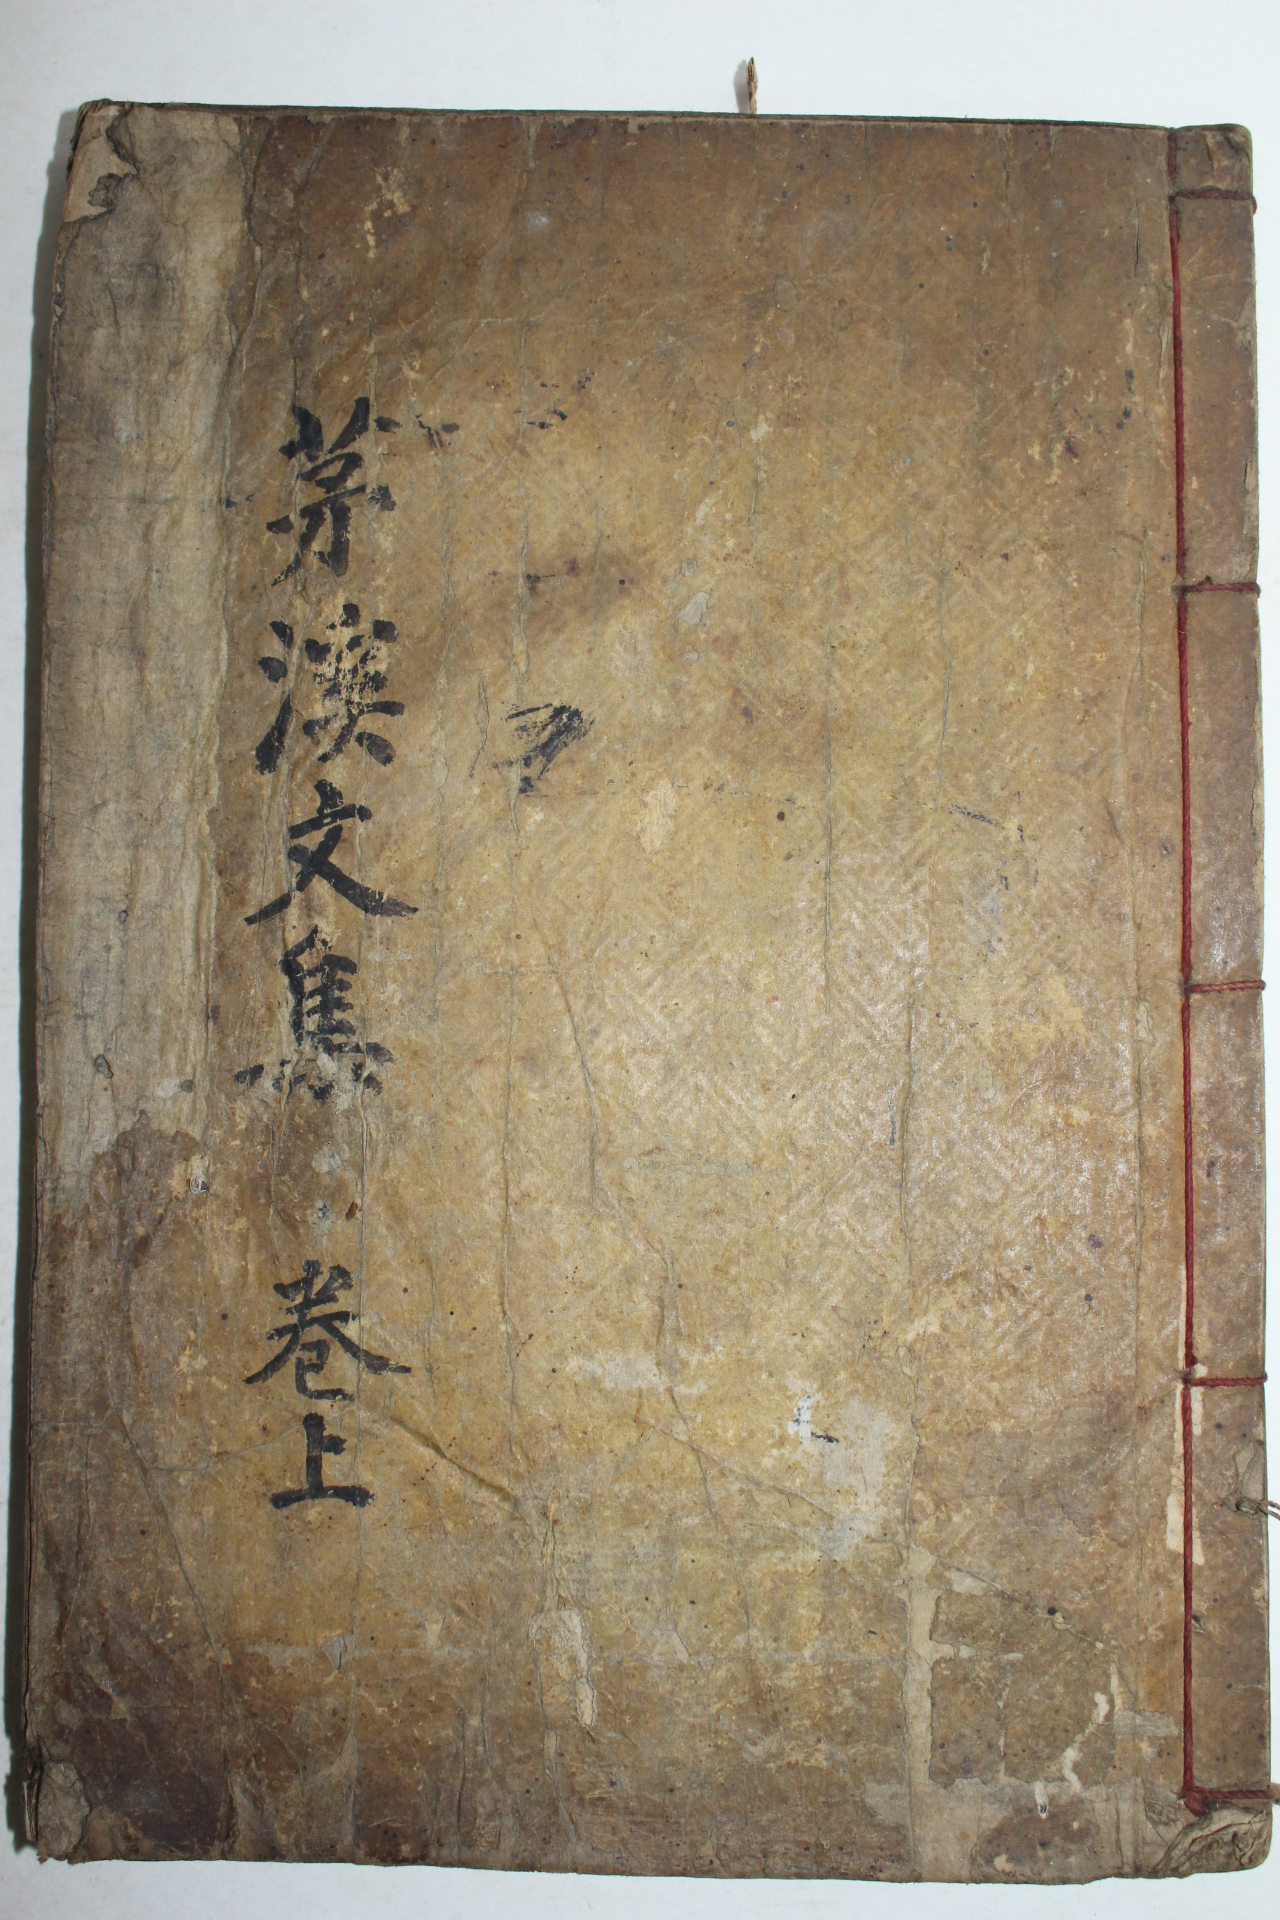 茅溪文集 卷上